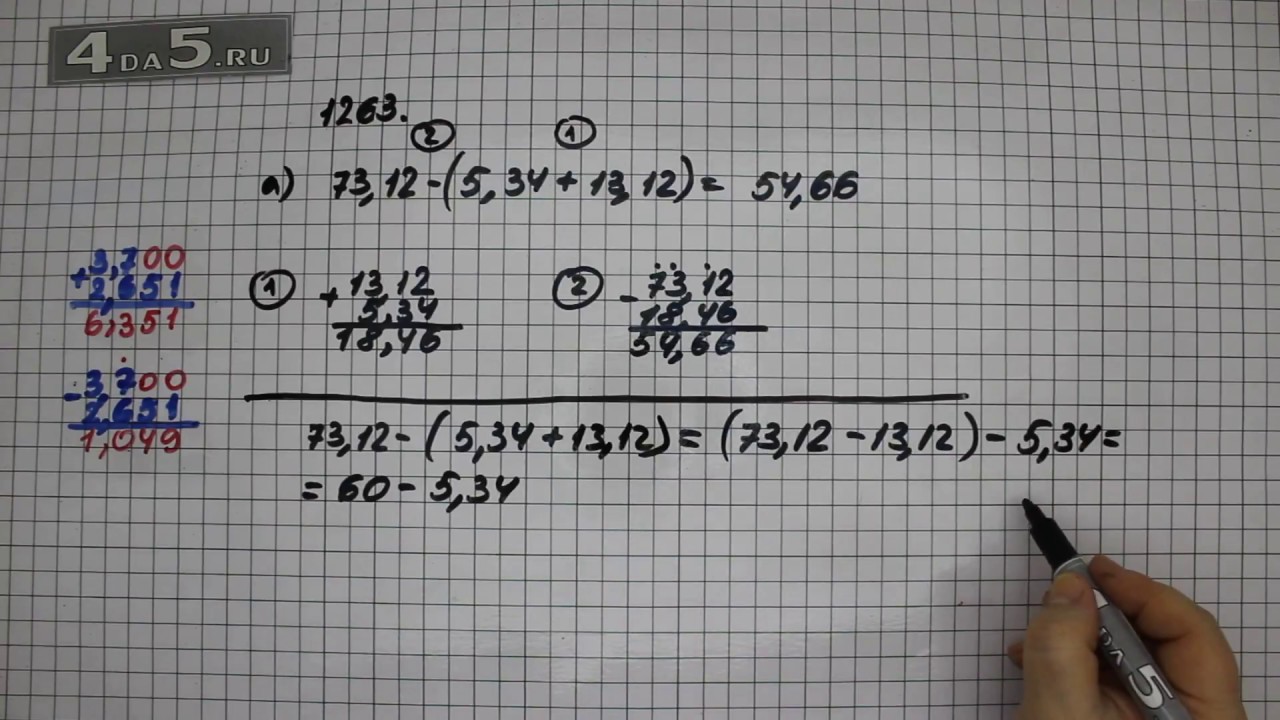 4DA5.RU
1263.
② ①
а) 73,12 - (5,34 + 13,12) = 54,66
+ 3,700
2,651
6,351
- 3,700
2,651
1,049
① + 13,12
5,34
18,46
② - 73,12
18,46
54,66
73,12 - (5,34 + 13,12) = (73,12 - 13,12) - 5,34 =
= 60 - 5,34
DA 5